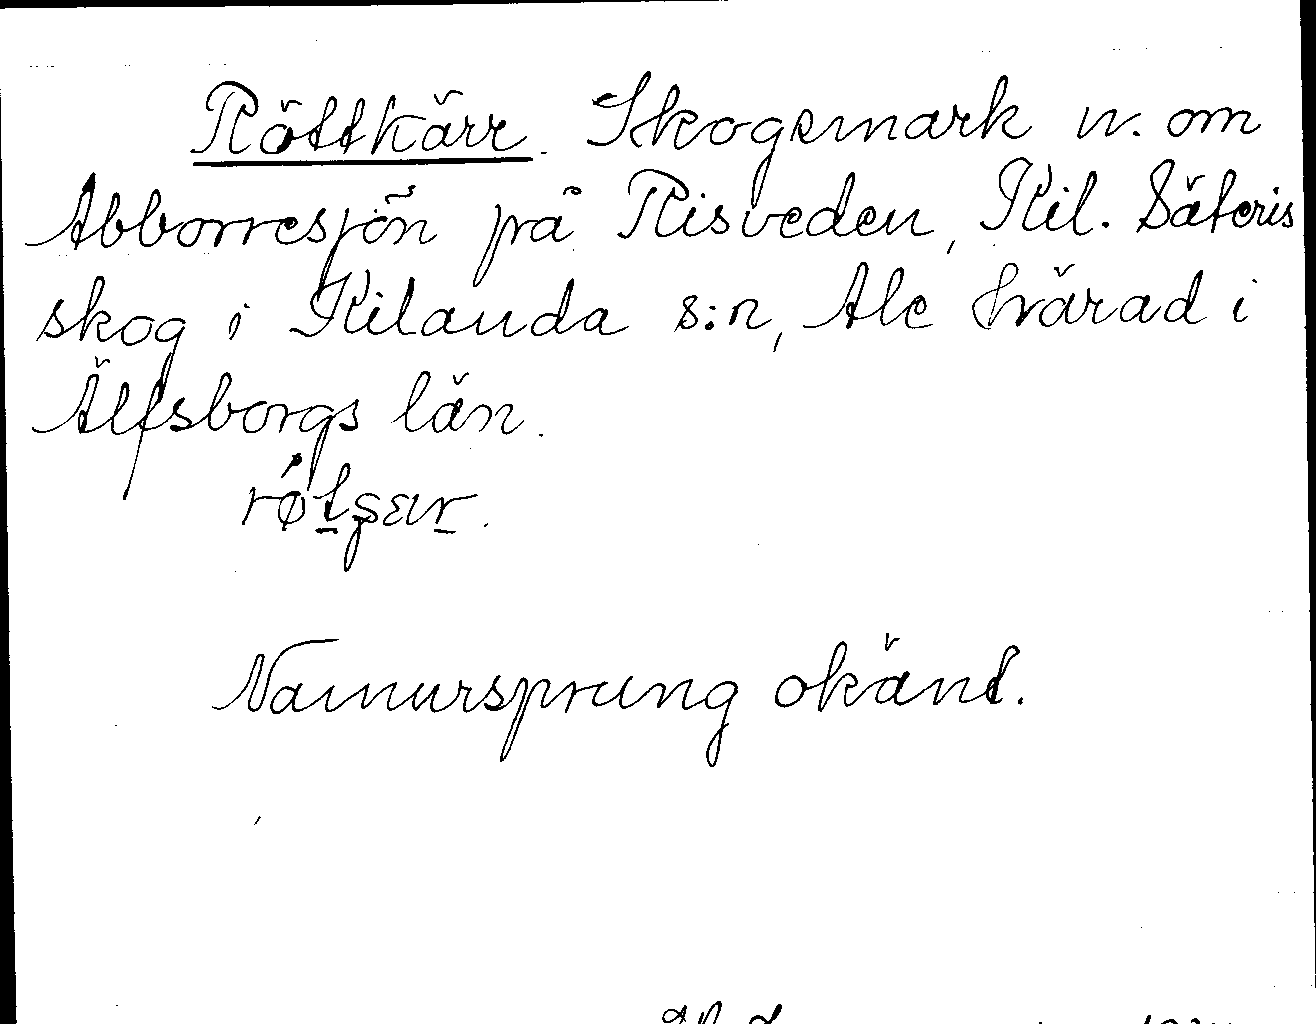 Röttkärr. Skogsmark n. om
Abborresjön på Risveden, Kil. Säteris
skog i Kilanda s:n, Ale härad i
Älfsborgs län.
Namursprung okänt.